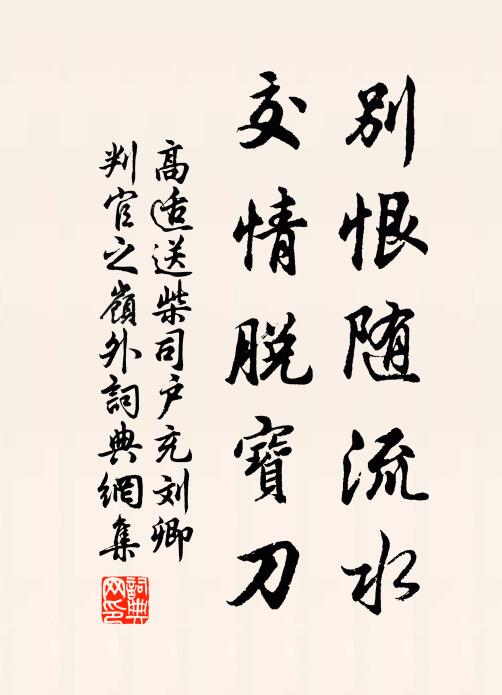 别恨随流水
交情脱寶刀
高适送柴司户充刘卿
判官之嶺外詞典網集
詞典
网印